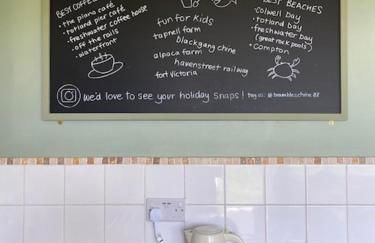 BEST COFFEE
• the piano café
• totland pier café
• freshwater coffee house
• off the rails
• waterfront
fun for kids
tapnell farm
blackgang chine
alpaca farm
havenstreet railway
fort victoria
BEST BEACHES
• Colwell Day
• totland Day
• freshwater Day
(great rock pools)
• Compton
we'd love to see your holiday snaps!